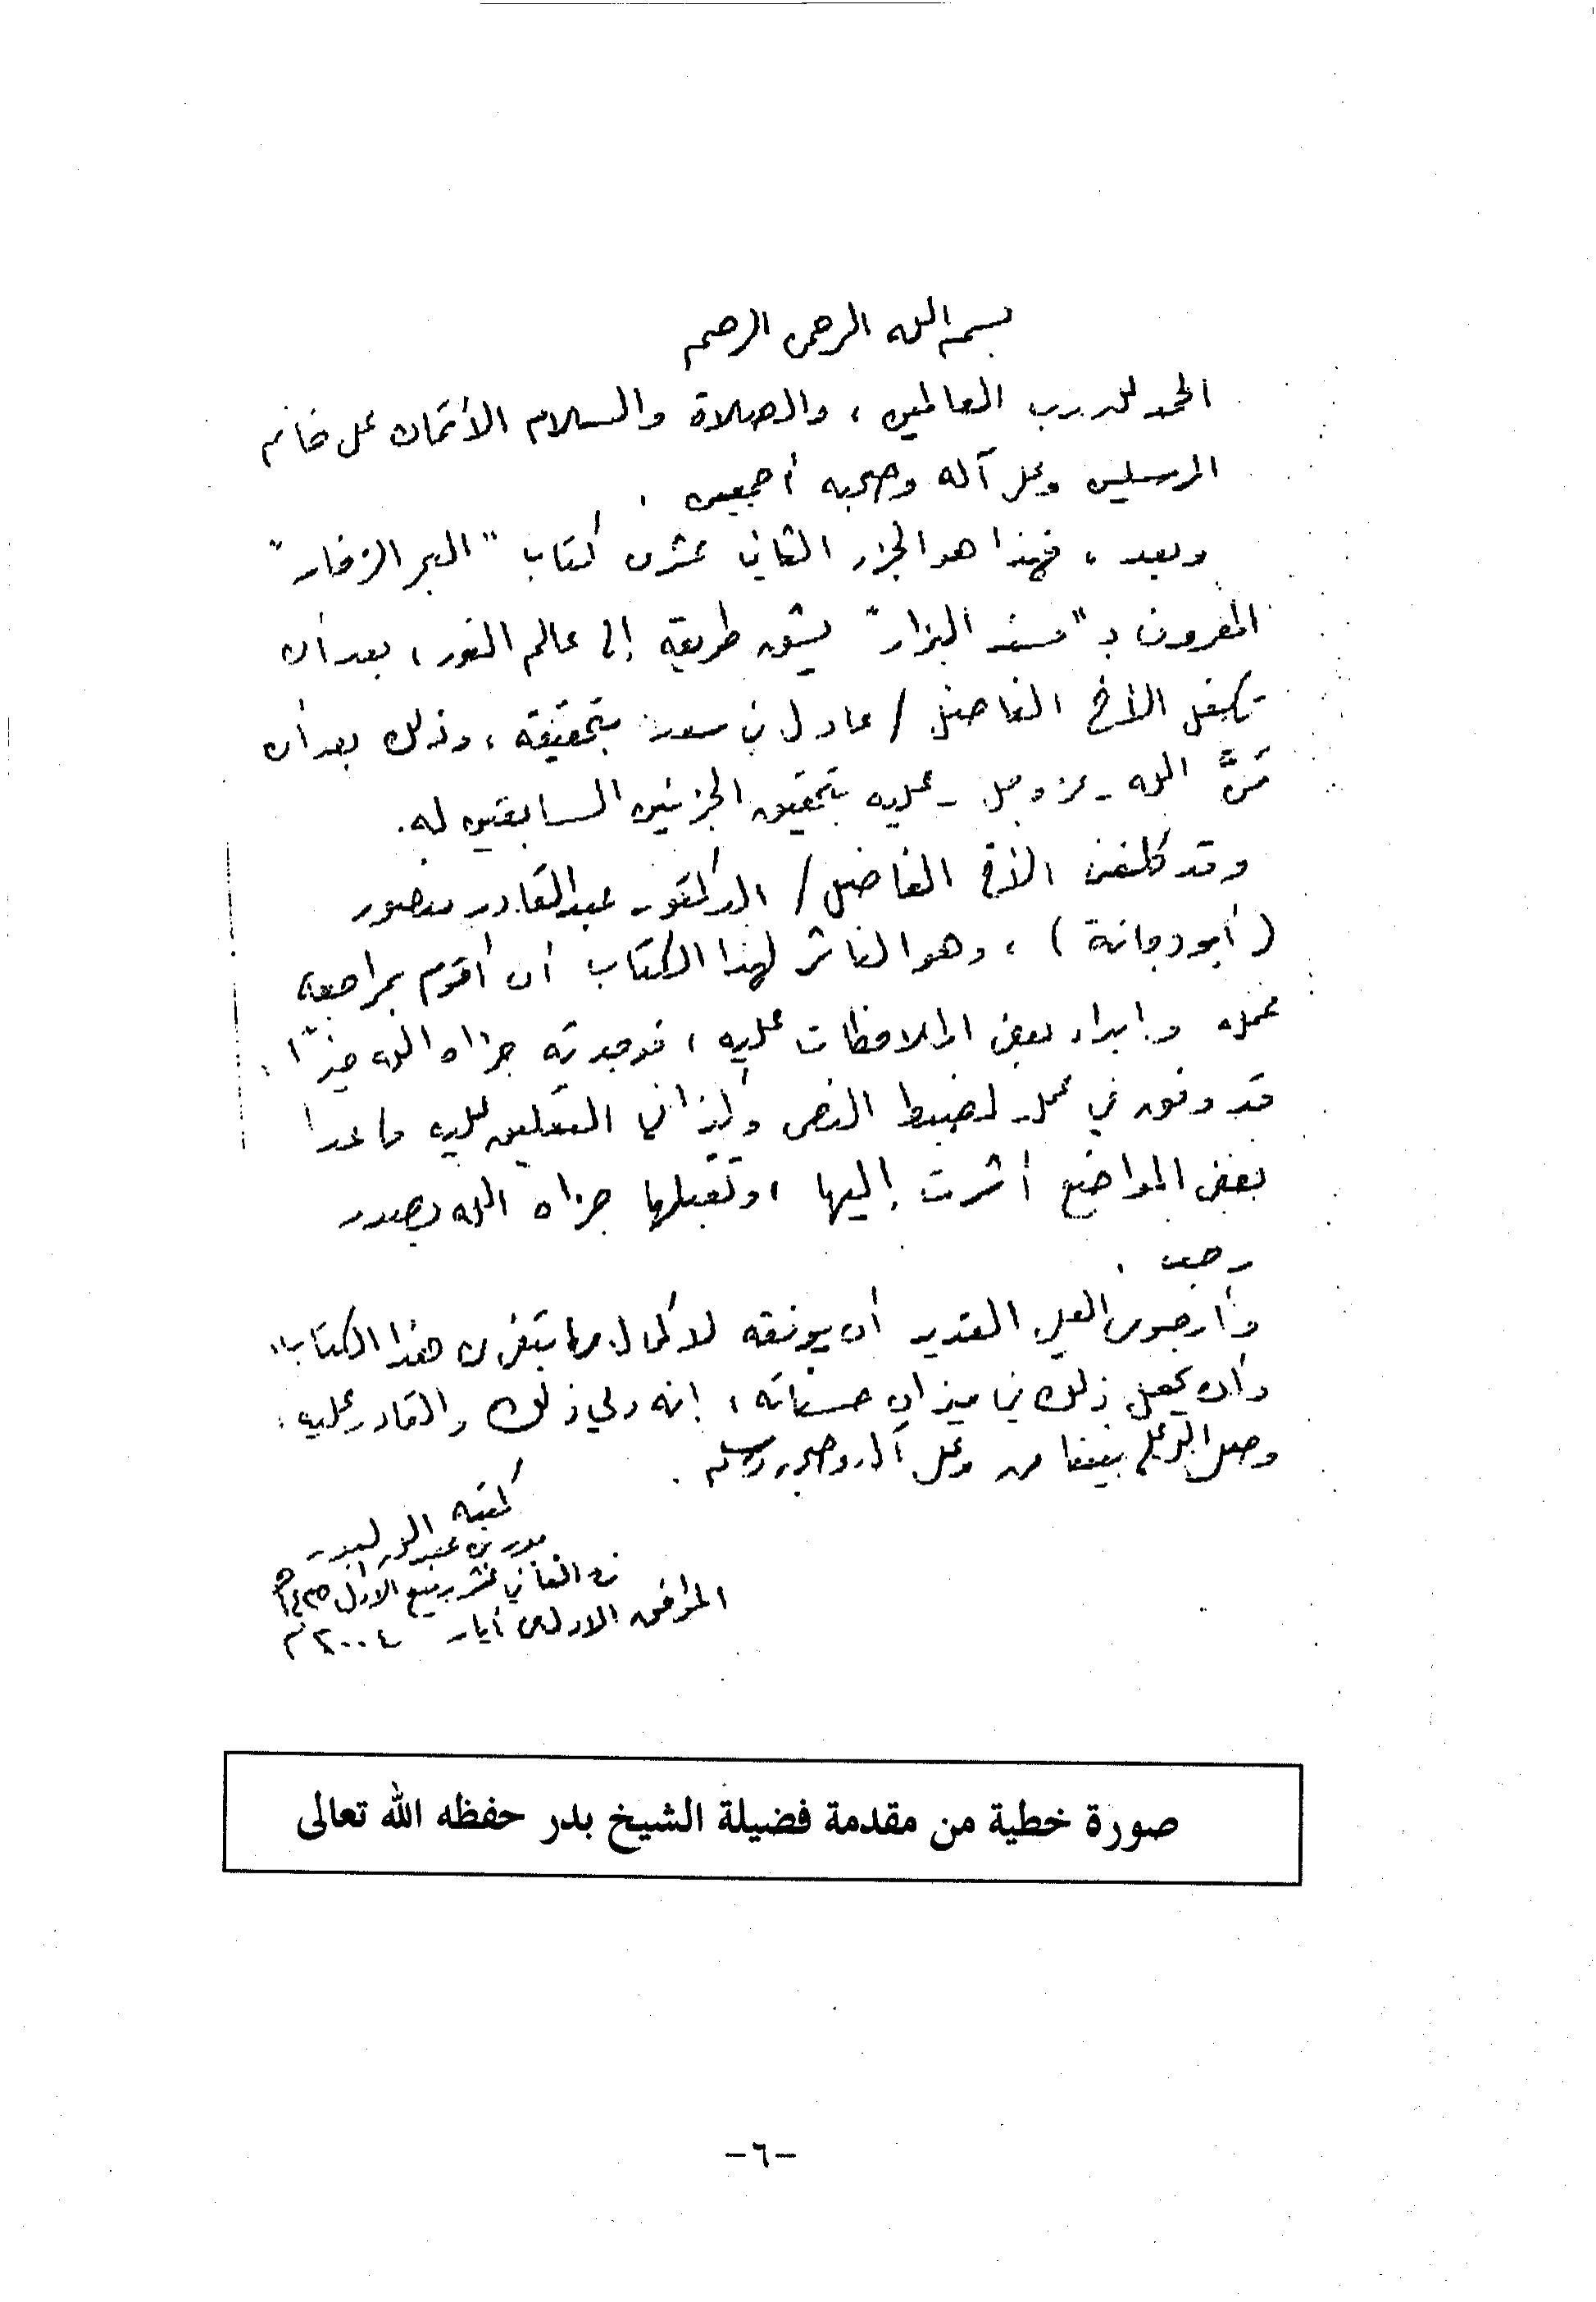 بسم الله الرحمن الرحيم
الحمد لله رب العالمين ، والصلاة والسلام الأتمان على خاتم
المرسلين وعلى آله وصحبه أجمعين .
وبعد ، فهذا هو الجزء الثاني عشر من كتاب " البحر الزخار "
المعروف بـ " مسند البزار " يشق طريقه إلى عالم النور ، بعد أن
تكفل الأخ الفاضل / عادل بن سعد بتحقيقه ، وذلك بعد أن
مَنَّ الله - عز وجل - عليه بتحقيق الجزئين السابقين له .
وقد كلفني الأخ الفاضل / الدكتور عبد القادر منصور
( أبو دجانة ) ، وهو الناشر لهذا الكتاب أن أقوم بمراجعة
عمله وإبداء بعض الملاحظات عليه ، فوجدته جزاه الله خيرًا ،
قد وفق في عمله لضبط النص وكذا في التعليق عليه ما عدا
بعض المواضع أشرت إليها ، وتقبلها جزاه الله بصدر
رحب .
وأرجو من العلي القدير أن يوفقه لإكمال ما بقي من هذا الكتاب ،
وأن يجعل ذلك في ميزان حسناته ، إنه ولي ذلك والقادر عليه .
وصلى الله على نبينا محمد وعلى آله وصحبه وسلم .
كتبه
بدر بن عبد الله البدر
في الثاني عشر ربيع الأول ١٤٢٥ هـ
الموافق الأول من أيار ٢٠٠٤ م
صورة خطية من مقدمة فضيلة الشيخ بدر حفظه الله تعالى
-٦-